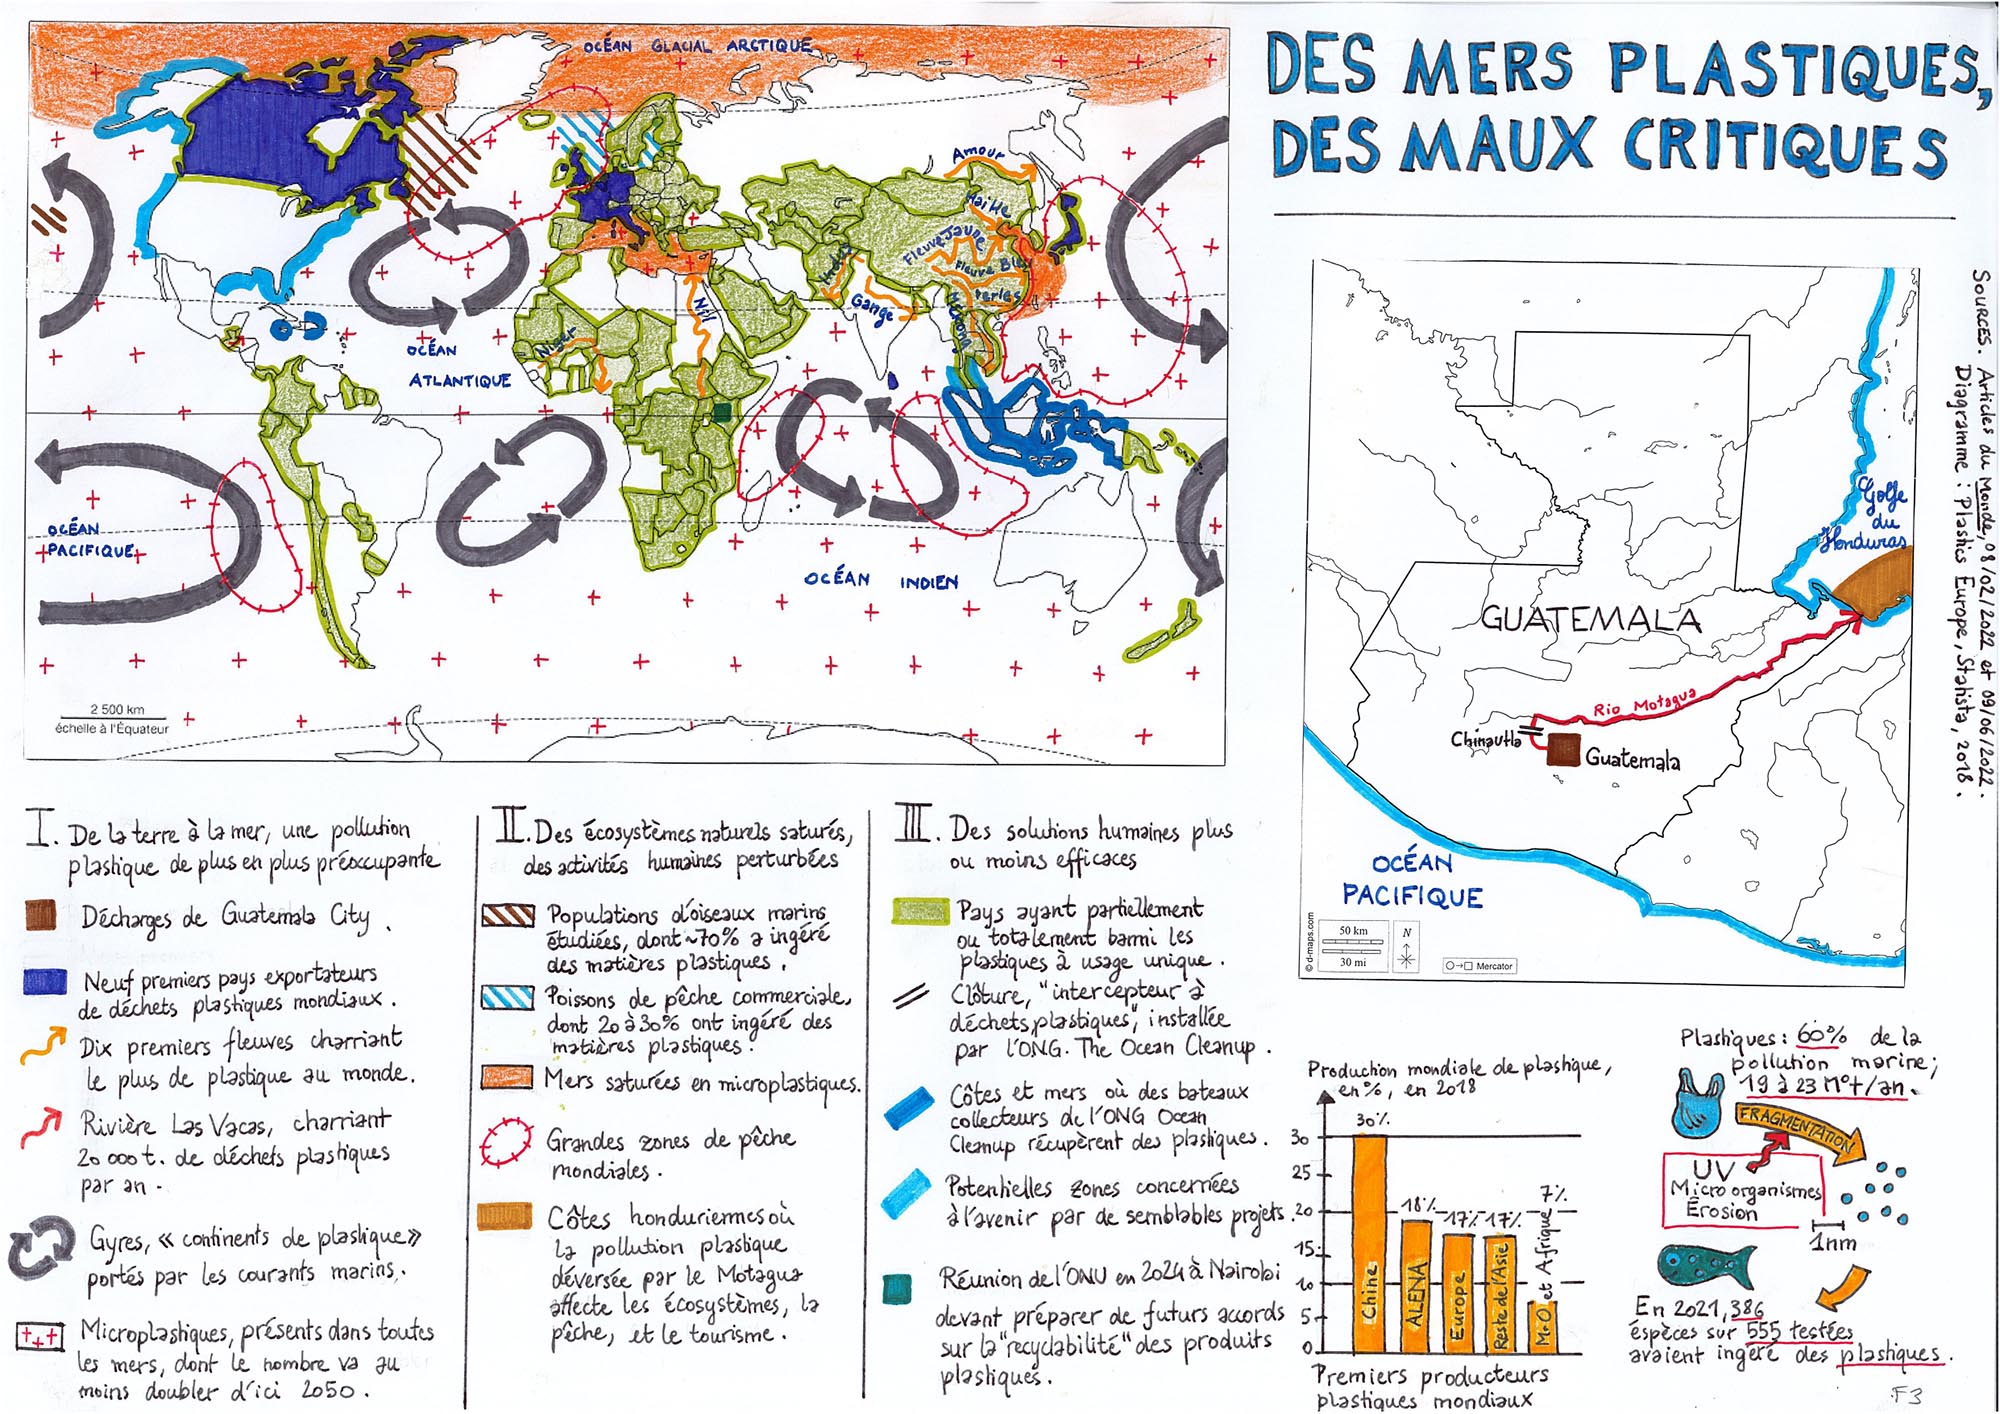 DES MERS PLASTIQUES,
DES MAUX CRITIQUES
OCÉAN GLACIAL ARCTIQUE
Amour
Haihe
Fleuve Jaune
Fleuve Bleu
Perles
Mékong
Indus
Gange
Nil
Niger
OCÉAN
ATLANTIQUE
OCÉAN
PACIFIQUE
OCÉAN INDIEN
2 500 km
échelle à l'Équateur
Golfe
du
Honduras
GUATEMALA
Rio Motagua
Chinautla
Guatemala
OCÉAN
PACIFIQUE
© d-maps.com
50 km
30 mi
N
Mercator
SOURCES. Articles du Monde, 08/02/2022 et 09/06/2022.
Diagramme : Plastics Europe, Statista, 2018.
I. De la terre à la mer, une pollution
plastique de plus en plus préoccupante
Décharges de Guatemala City.
Neuf premiers pays exportateurs
de déchets plastiques mondiaux.
Dix premiers fleuves charriant
le plus de plastique au monde.
Rivière Las Vacas, charriant
20 000 t. de déchets plastiques
par an.
Gyres, « continents de plastique »
portés par les courants marins.
Microplastiques, présents dans toutes
les mers, dont le nombre va au
moins doubler d'ici 2050.
II. Des écosystèmes naturels saturés,
des activités humaines perturbées
Populations d'oiseaux marins
étudiées, dont ~70% a ingéré
des matières plastiques.
Poissons de pêche commerciale,
dont 20 à 30% ont ingéré des
matières plastiques.
Mers saturées en microplastiques.
Grandes zones de pêche
mondiales.
Côtes honduriennes où
la pollution plastique
déversée par le Motagua
affecte les écosystèmes, la
pêche, et le tourisme.
III. Des solutions humaines plus
ou moins efficaces
Pays ayant partiellement
ou totalement banni les
plastiques à usage unique.
Clôture, "intercepteur à
déchets plastiques", installée
par l'ONG. The Ocean Cleanup.
Côtes et mers où des bateaux
collecteurs de l'ONG Ocean
Cleanup récupèrent des plastiques.
Potentielles zones concernées
à l'avenir par de semblables projets.
Réunion de l'ONU en 2024 à Nairobi
devant préparer de futurs accords
sur la "recyclabilité" des produits
plastiques.
Production mondiale de plastique,
en %, en 2018
30%
18%
17%
17%
7%
30
25
20
15
10
5
0
Chine
ALENA
Europe
Reste de l'Asie
M-O et Afrique
Premiers producteurs
plastiques mondiaux
Plastiques : 60% de la
pollution marine ;
19 à 23 M°t/an.
FRAGMENTATION
UV
Micro organismes
Érosion
1nm
En 2021, 386
espèces sur 555 testées
avaient ingéré des plastiques.
F3